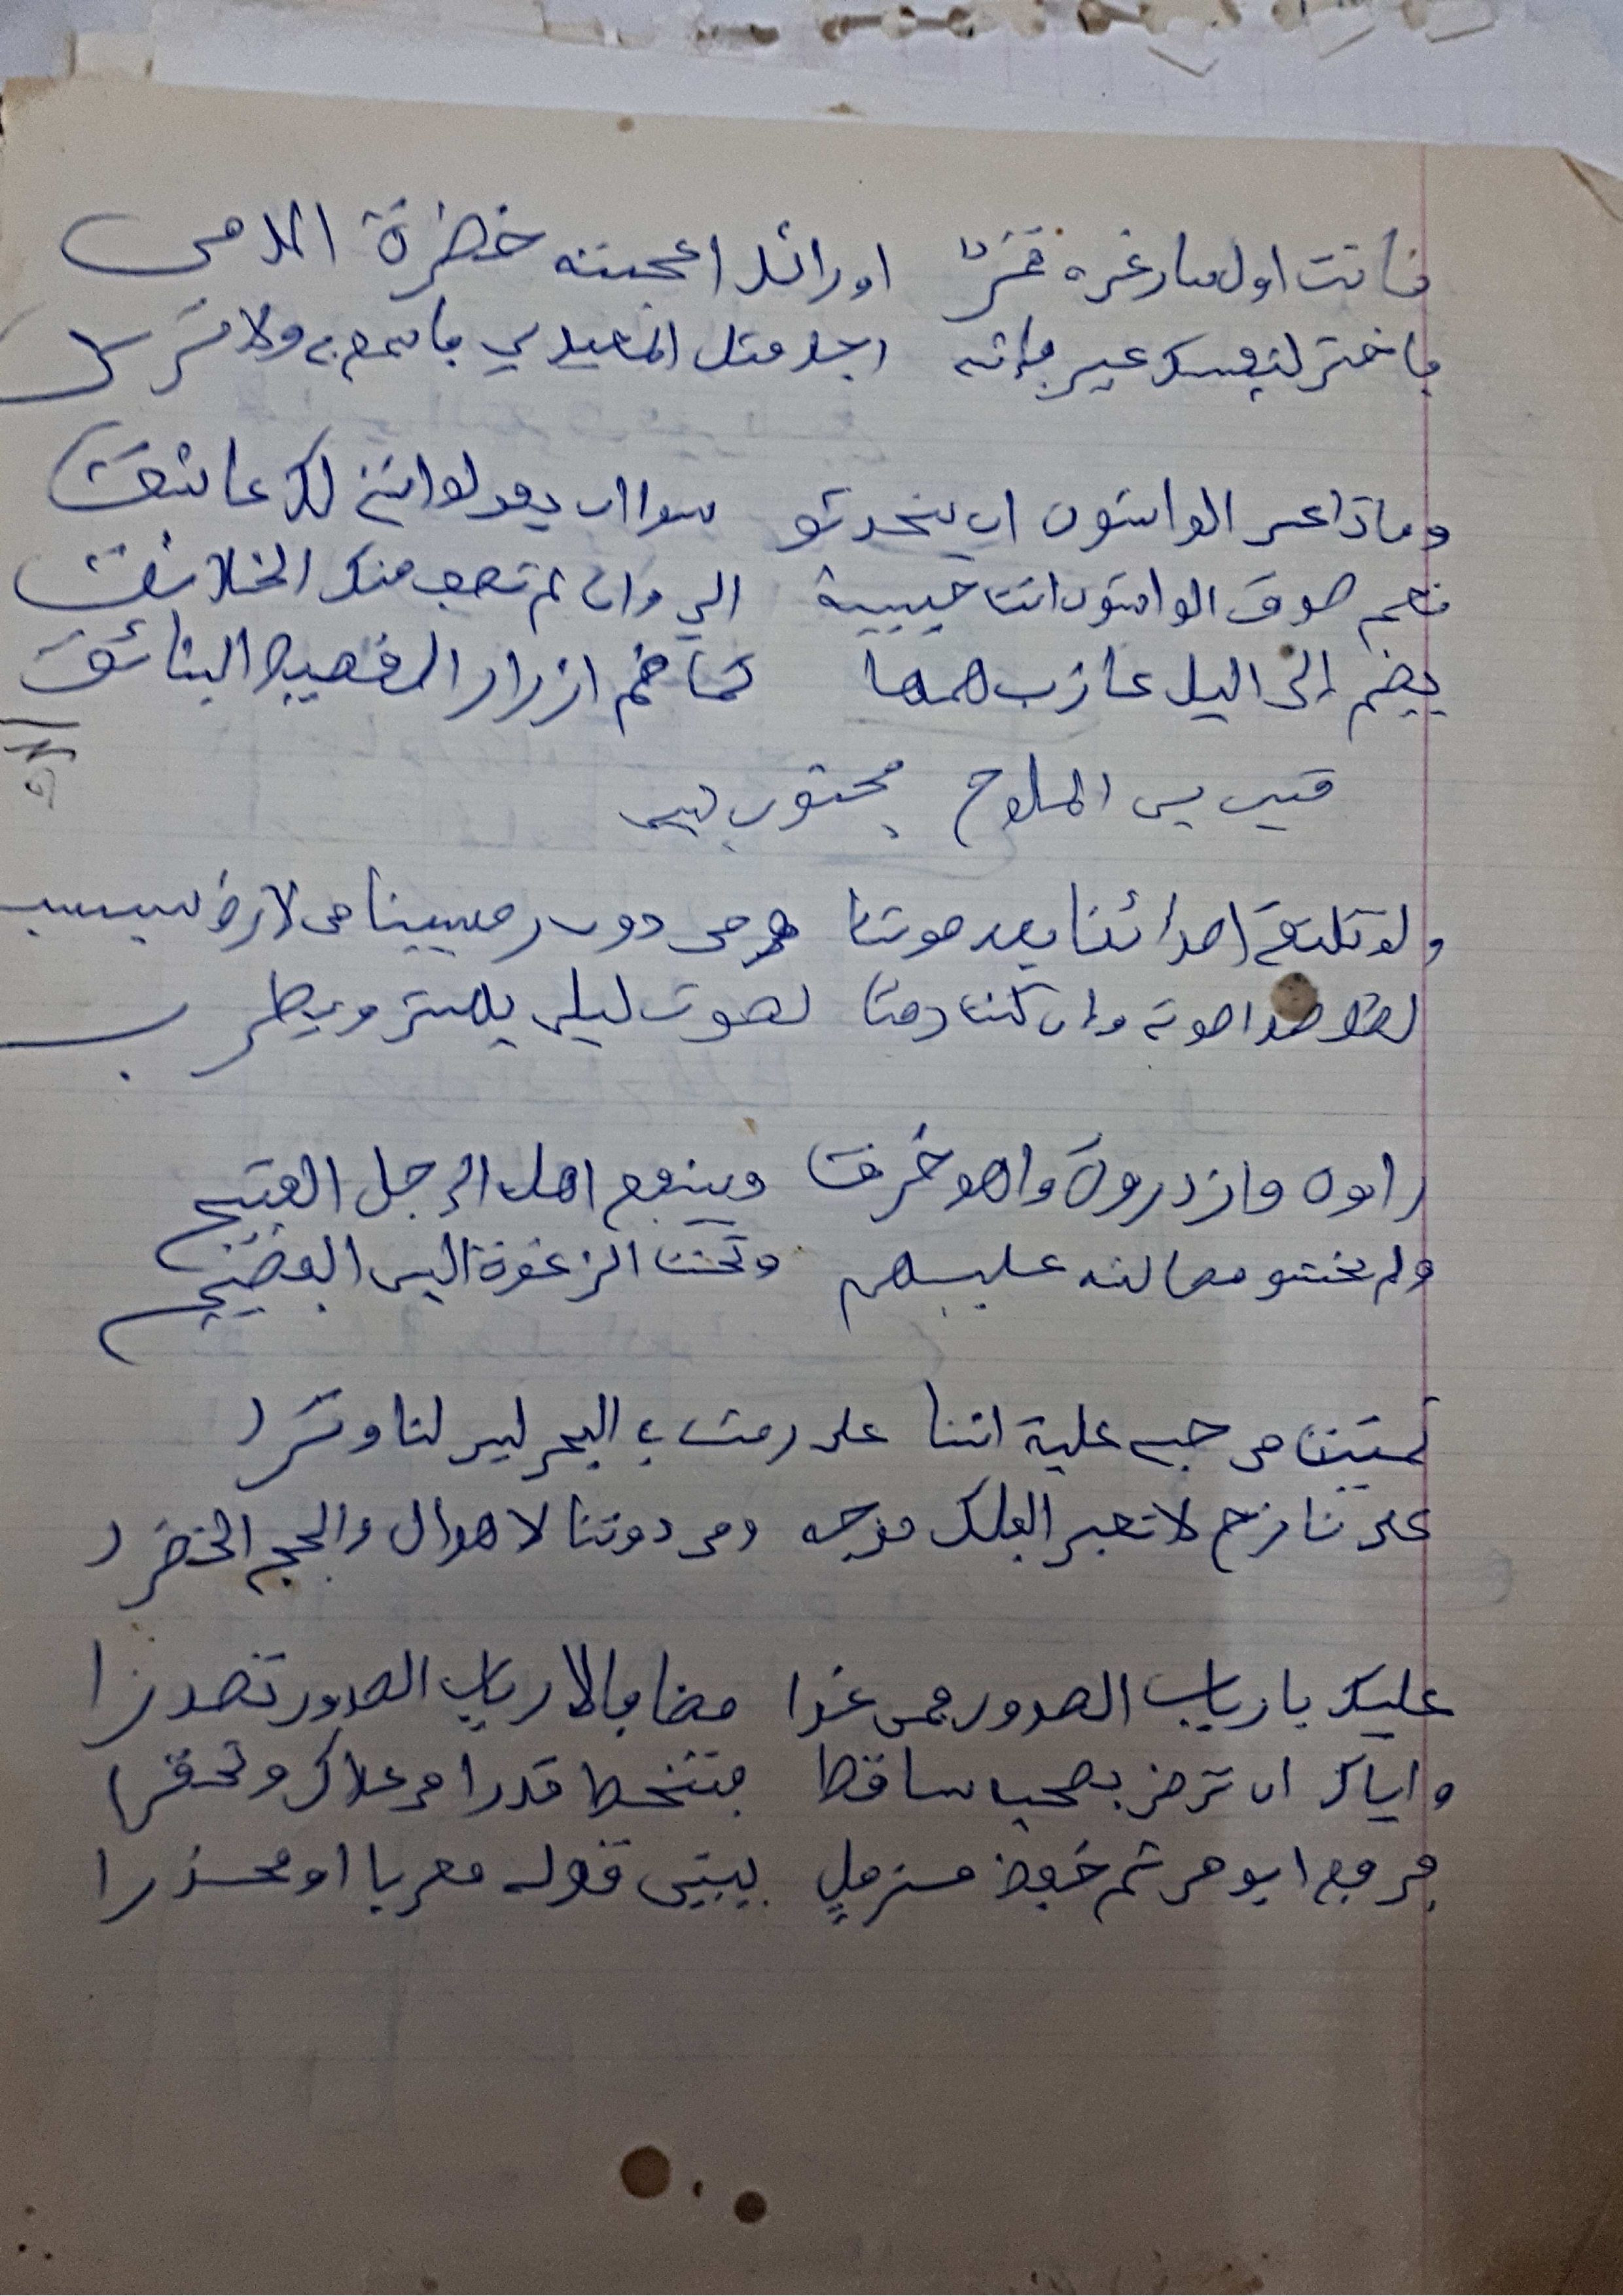 فأنت اول سار غره قمرٌ اورائد اعجبته خضرة الدمى
فاختر لنفسك غير فإنه رجل مثل المعيدي فاسمع بي ولا ترى
وماذا عسى الواشون ان يتحدثو سوا ان يقولوا انني لك عاشقت
نعم صدق الواشون انت حبيبة الي وان لم تصف منك الخلائقت
يضم إلى اليل عازب همها كما ضم ازرار القميص البنائق
قيس بن الملوح مجنون ليلى
ولو تلتقي اصدائنا بعد موتنا ومن دون رمسينا من لارض سبسب
لظل صدا صوتي وإن كنت رمتا لصوت ليلى يهش ويطرب
راوه فازدروه واهو خرقت وينفع اهله الرجل القبيح
ولم يخشو مصالته عليهم وتحت الرغوة البن الفصيح
تمنيت من حبي علية اننا على رمث في البحر ليس لنا وفرا
على نازح لا تعبر الفلك موجه ومن دوننا لاهوال والجج الخضرا
عليك بارباب الصدور فمن غدا مضافا لارباب الصدور تصدرا
واياك ان ترضى بصحب ساقط فتنحط قدرا من علاك وتحقرا
فرفع ابو من ثم خفض مزملٍ يبين قوله مغريا او محذرا